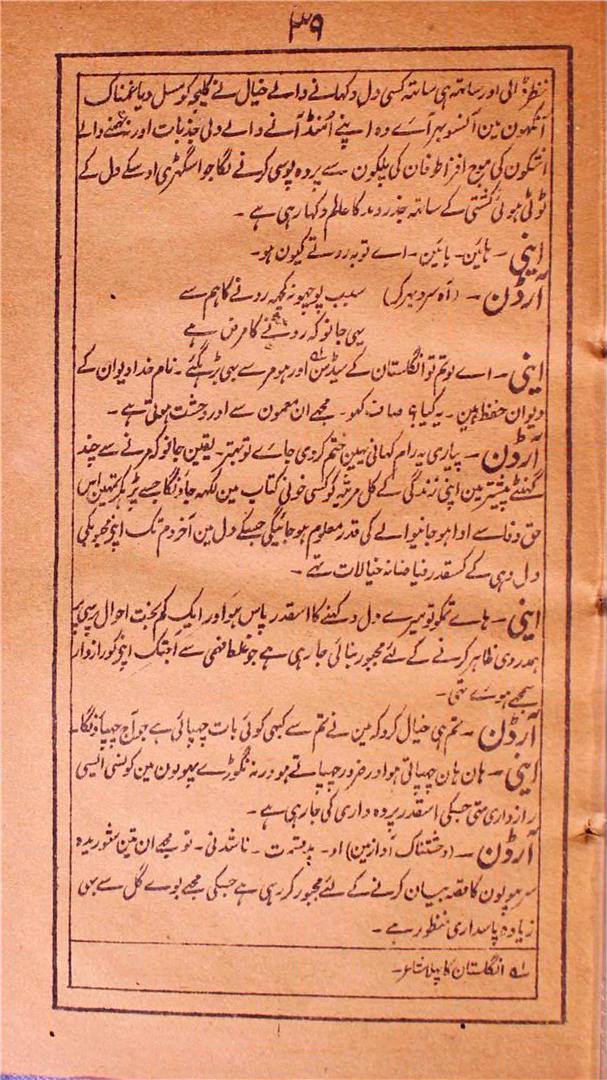 ۳۹
نظر ڈالی اور ساتھ ہی ساتھ کسی دل دکہانے والے خیال نے کلیجو کو مسل دیا۔ غمناک
آنکہون مین آنسو بہر آے وہ اپنے اُمنڈ آنے والے دلی جذبات اور نہ تھمنے والے
اشکون کی موج افزا طوفان کی پلکون سے پردہ پوسی کرنے لگا جو اسگہڑی اوسکے دل کے
ٹوٹی ہوئی کشتی کے ساتہ جذر و مد کا عالم دکہا رہی ہے ۔
اینی ۔ ہائین۔ ہائین۔ اے توبہ روتے کیون ہو۔
آرڈن ۔ (آہ سرد بہر کر) سبب پوچہو نہ کچہہ رونے کا ہم سے
یہی جانو کہ رونے کا مرض ہے
اینی ۔ اے لو تم تو انگلستان کے سیڈمن ؎ اور ہومر سے بہی بڑہ گئے ۔ نام خدا دیوان کے
دیوان حفظ ہین ۔ یہ کیا ہے صاف کہو ۔ مجھے ان معمون سے اور وحشت ہوتی ہے ۔
آرڈن ۔ پیاری یہ رام کہانی یہین ختم کر دی جاے تو بہتر ۔ یقین جانو کہ مرنے سے چند
گہنٹے پیشتر مین اپنی زندگی کے کل مرثیہ کو کسی خونی کتاب مین لکہہ جاؤنگا جسے پڑہ کر تمہین اس
حق وفا سے ادا ہو جانیوالے کی قدر معلوم ہو جائیگی جسکے دل مین آخر دم تک اپنی محبوبہ کی
دل دہی کے کسقدر فیاضانہ خیالات تہے ۔
اینی ۔ ہاے تمکو تو میرے دل دکہنے کا اسقدر پاس ہو اور ایک کم بخت احوال پرسی پر
ہمدردی ظاہر کرنے کے لئے مجبور بنائی جا رہی ہے جو غلط فہمی سے آجتک اپنیکو رازدار
سمجھے ہوے تہی ۔
آرڈن ۔ تم ہی خیال کرو کہ مین نے تم سے کبہی کوئی بات چہپائی ہے جو آج چہپاؤنگا۔
اینی ۔ ہان ہان چہپاتی ہو اور ضرور چہپاتے ہو ورنہ نگوڑے پہیپون مین کونسی ایسی
رازداری تہی جسکی اسقدر پردہ داری کی جا رہی ہے ۔
آرڈن ۔ (وحشتناک آواز مین) او ۔ بدقسمت ۔ ناشدنی ۔ تو مجھے ان تین شوریدہ
سر کا قصہ بیان کرنے کے لئے مجبور کر رہی ہے جسکی مجھے بوے گل سے بہی
زیادہ پاسداری منظور ہے ۔
؎ انگلستان کا پہلا شاعر ۔